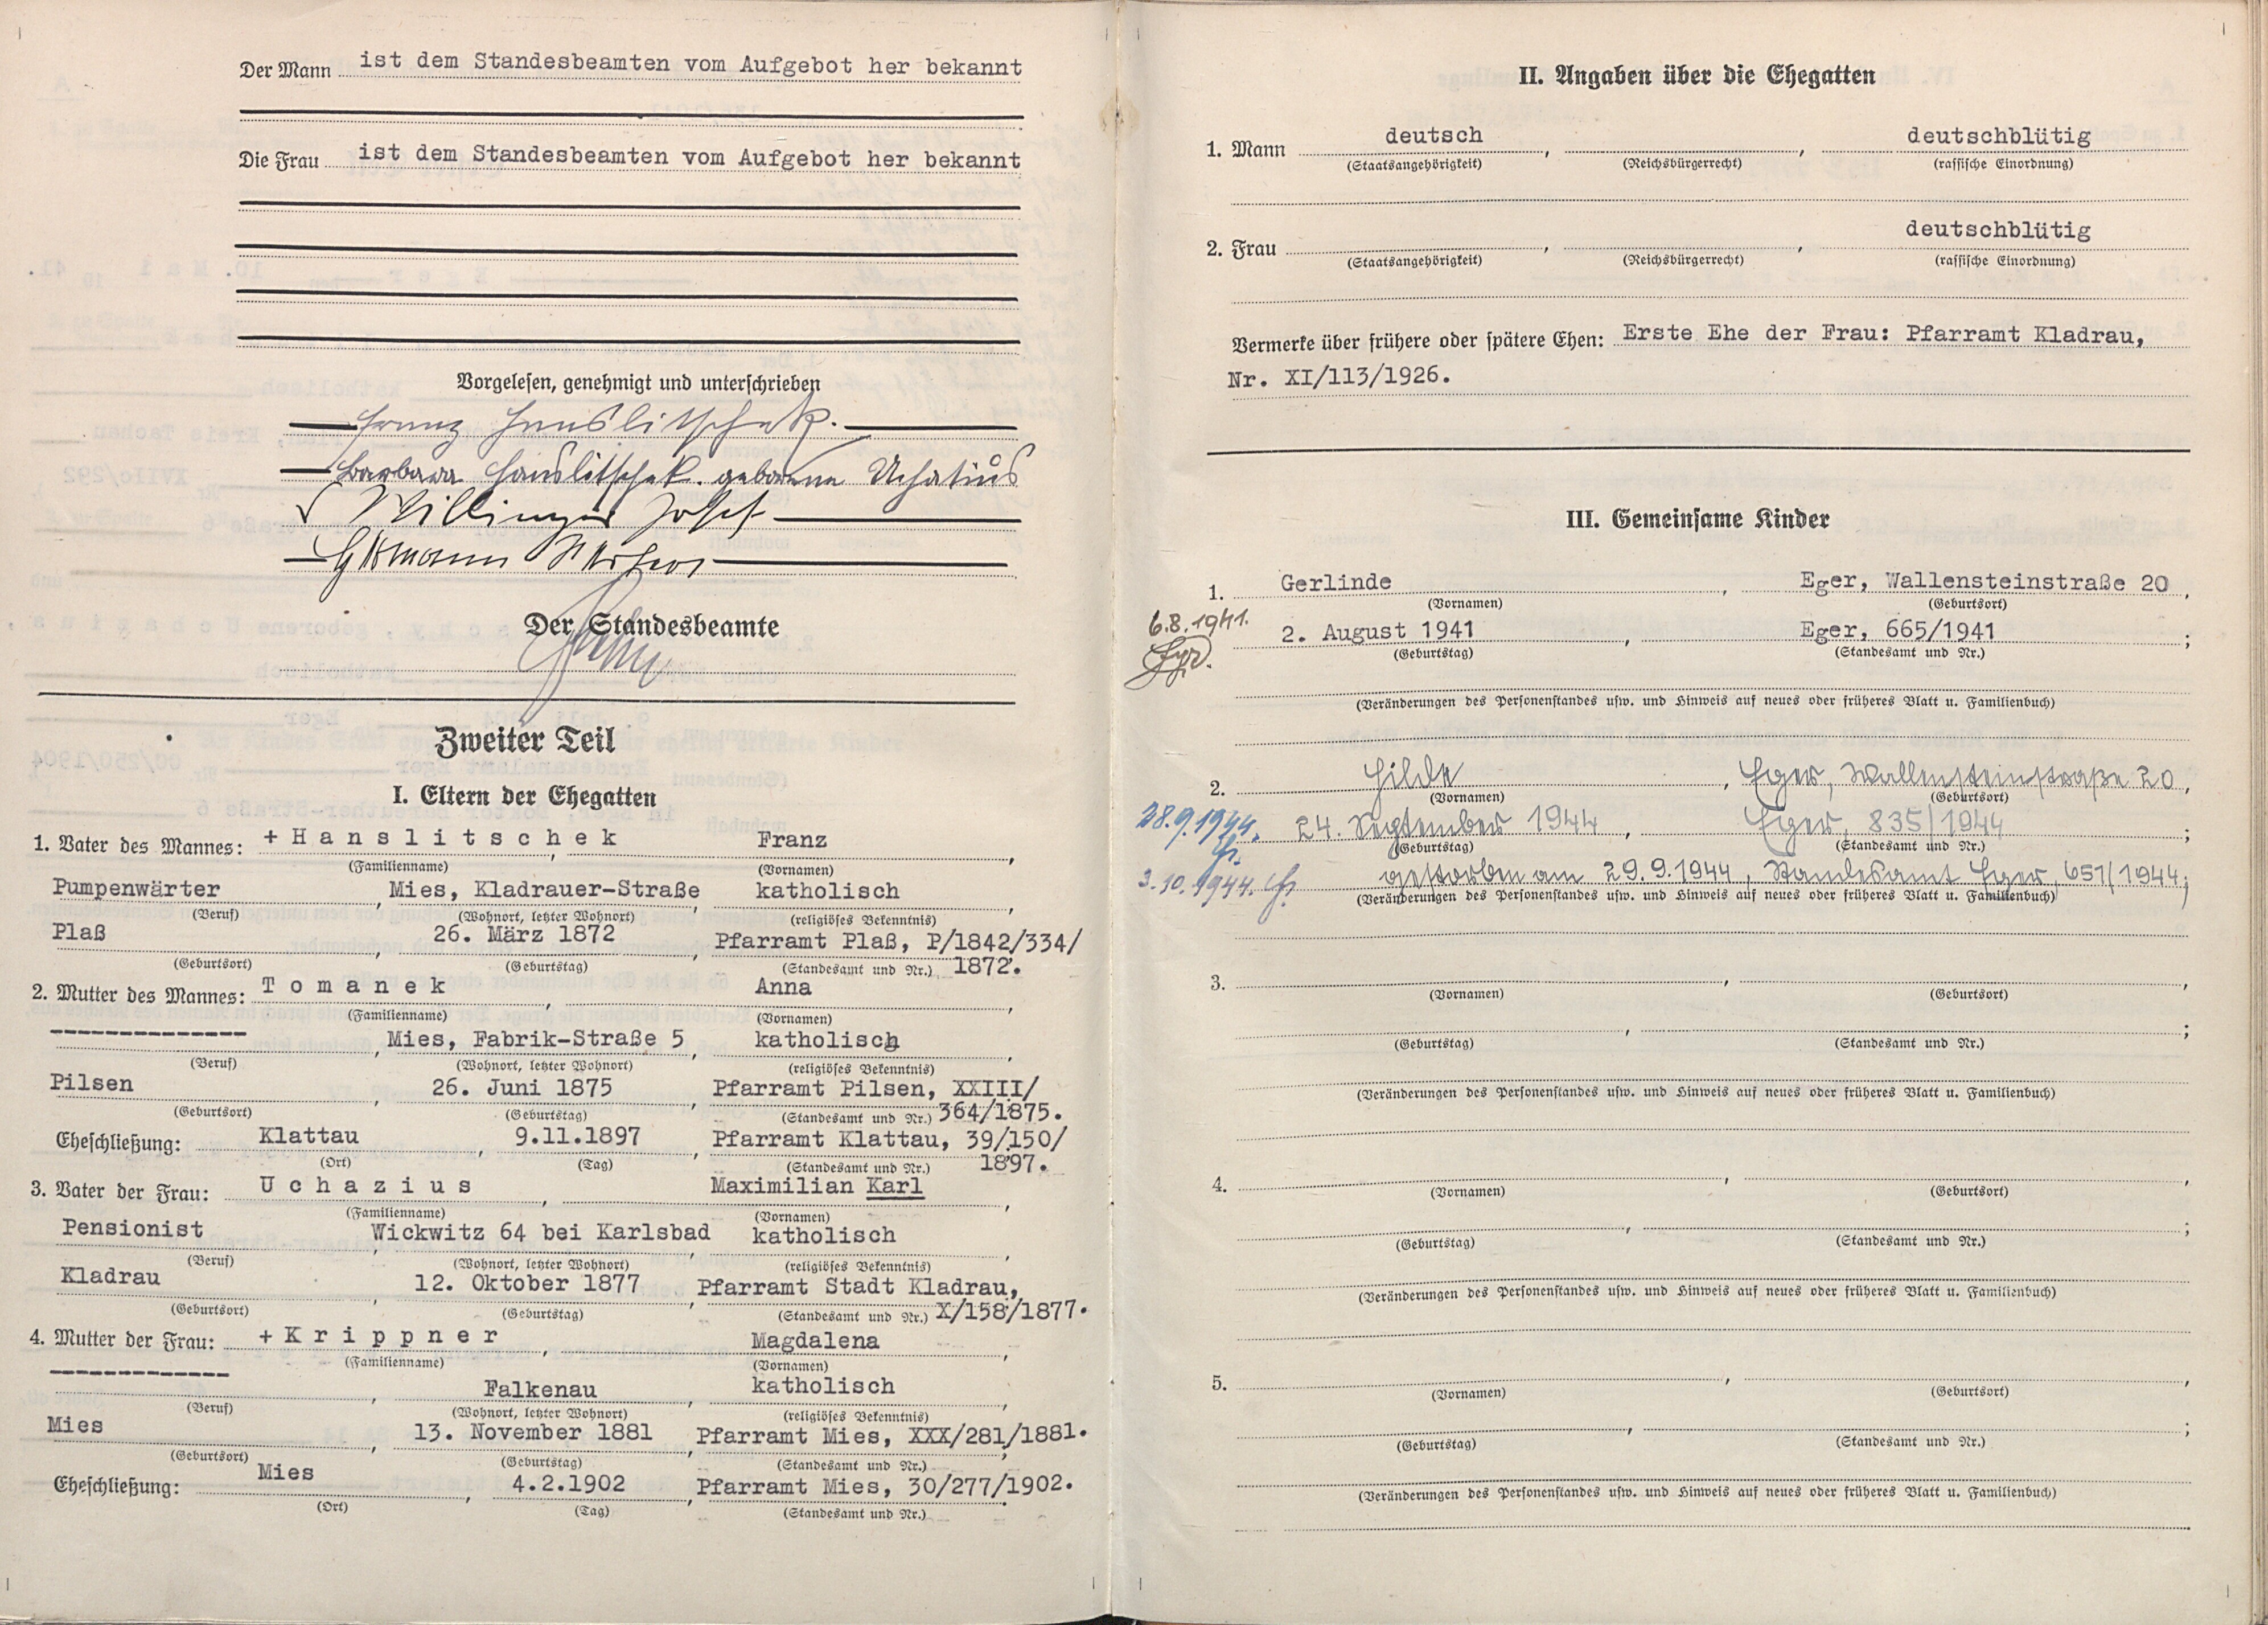 Der Mann ist dem Standesbeamten vom Aufgebot her bekannt
Die Frau ist dem Standesbeamten vom Aufgebot her bekannt
Vorgelesen, genehmigt und unterschrieben
Franz Hanslitschek.
Barbara Hanslitschek. geborene Uchatius
Willinger Josef
Der Standesbeamte
Zweiter Teil
I. Eltern der Ehegatten
1. Vater des Mannes: + Hanslitschek, Franz,
(Familienname) (Vornamen)
Pumpenwärter, Mies, Kladrauer-Straße katholisch,
(Beruf) (Wohnort, letzter Wohnort) (religiöses Bekenntnis)
Plaß, 26. März 1872, Pfarramt Plaß, P/1842/334/
(Geburtsort) (Geburtstag) (Standesamt und Nr.) 1872.
2. Mutter des Mannes: Tomanek, Anna,
(Familienname) (Vornamen)
--------------, Mies, Fabrik-Straße 5, katholisch,
(Beruf) (Wohnort, letzter Wohnort) (religiöses Bekenntnis)
Pilsen, 26. Juni 1875, Pfarramt Pilsen, XXIII/
(Geburtsort) (Geburtstag) (Standesamt und Nr.) 364/1875.
Eheschließung: Klattau, 9.11.1897, Pfarramt Klattau, 39/150/
(Ort) (Tag) (Standesamt und Nr.) 1897.
3. Vater der Frau: Uchazius, Maximilian Karl,
(Familienname) (Vornamen)
Pensionist, Wickwitz 64 bei Karlsbad, katholisch,
(Beruf) (Wohnort, letzter Wohnort) (religiöses Bekenntnis)
Kladrau, 12. Oktober 1877, Pfarramt Stadt Kladrau,
(Geburtsort) (Geburtstag) (Standesamt und Nr.) X/158/1877.
4. Mutter der Frau: + Krippner, Magdalena,
(Familienname) (Vornamen)
-------------, Falkenau, katholisch,
(Beruf) (Wohnort, letzter Wohnort) (religiöses Bekenntnis)
Mies, 13. November 1881, Pfarramt Mies, XXX/281/1881.
(Geburtsort) (Geburtstag) (Standesamt und Nr.)
Eheschließung: Mies, 4.2.1902, Pfarramt Mies, 30/277/1902.
(Ort) (Tag) (Standesamt und Nr.)
II. Angaben über die Ehegatten
1. Mann deutsch, , deutschblütig
(Staatsangehörigkeit) (Reichsbürgerrecht) (rassische Einordnung)
2. Frau , , deutschblütig
(Staatsangehörigkeit) (Reichsbürgerrecht) (rassische Einordnung)
Vermerke über frühere oder spätere Ehen: Erste Ehe der Frau: Pfarramt Kladrau,
Nr. XI/113/1926.
III. Gemeinsame Kinder
1. Gerlinde, Eger, Wallensteinstraße 20,
(Vornamen) (Geburtsort)
6.8.1941. 2. August 1941, Eger, 665/1941;
(Geburtstag) (Standesamt und Nr.)
(Veränderungen des Personenstandes usw. und Hinweis auf neues oder früheres Blatt u. Familienbuch)
2. Hilde, Eger, Wallensteinstraße 20,
(Vornamen) (Geburtsort)
28.9.1944. 24. September 1944, Eger, 835/1944;
(Geburtstag) (Standesamt und Nr.)
3.10.1944. gestorben am 29.9.1944, Standesamt Eger, 651/1944;
(Veränderungen des Personenstandes usw. und Hinweis auf neues oder früheres Blatt u. Familienbuch)
3. , ,
(Vornamen) (Geburtsort)
, ;
(Geburtstag) (Standesamt und Nr.)
(Veränderungen des Personenstandes usw. und Hinweis auf neues oder früheres Blatt u. Familienbuch)
4. , ,
(Vornamen) (Geburtsort)
, ;
(Geburtstag) (Standesamt und Nr.)
(Veränderungen des Personenstandes usw. und Hinweis auf neues oder früheres Blatt u. Familienbuch)
5. , ,
(Vornamen) (Geburtsort)
, ;
(Geburtstag) (Standesamt und Nr.)
(Veränderungen des Personenstandes usw. und Hinweis auf neues oder früheres Blatt u. Familienbuch)